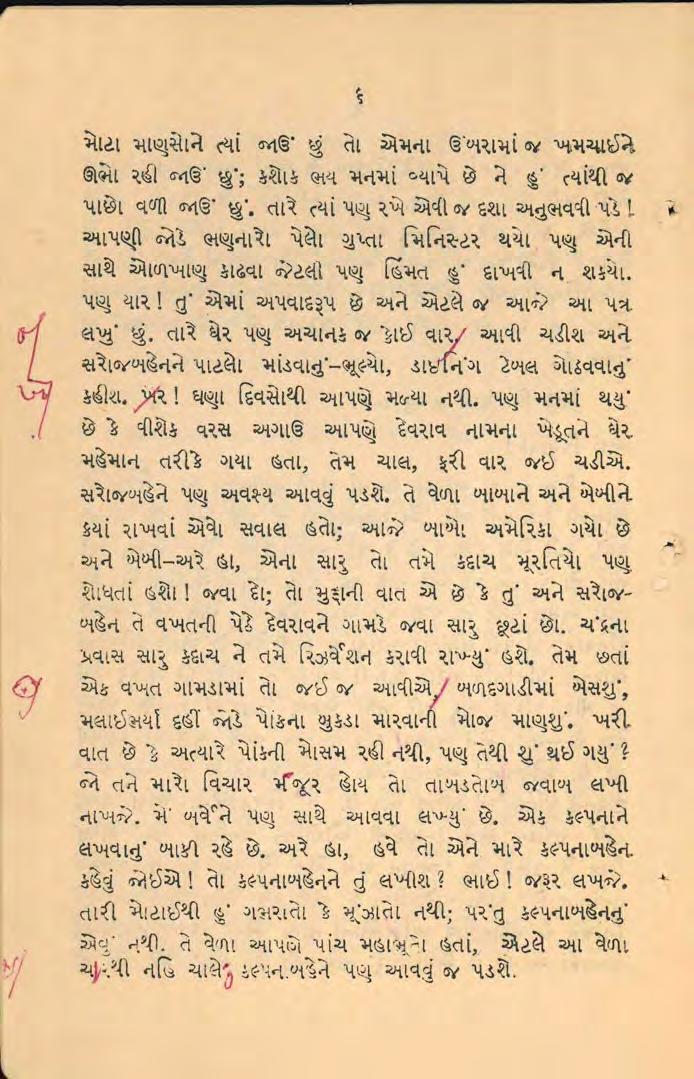 ૬
મોટા માણસોને ત્યાં જાઉં છું તો એમના ઉંબરામાં જ ખમચાઈને
ઊભો રહી જાઉં છું; કશોક ભય મનમાં વ્યાપે છે ને હું ત્યાંથી જ
પાછો વળી જાઉં છું. તારે ત્યાં પણ રખે એવી જ દશા અનુભવવી પડે !
આપણી જોડે ભણનારો પેલો ગુપ્તા મિનિસ્ટર થયો પણ એની
સાથે ઓળખાણ કાઢવા જેટલી પણ હિંમત હું દાખવી ન શકયો.
પણ યાર ! તું એમાં અપવાદરૂપ છે અને એટલે જ આજે આ પત્ર
લખું છું. તારે ઘેર પણ અચાનક જ કોઈ વાર, આવી ચડીશ અને
સરોજબહેનને પાટલો માંડવાનું–ભૂલ્યો, ડાઇનિંગ ટેબલ ગોઠવવાનું
કહીશ. ખર ! ઘણા દિવસોથી આપણે મળ્યા નથી. પણ મનમાં થયું
છે કે વીશેક વરસ અગાઉ આપણે દેવરાવ નામના ખેડૂતને ઘેર
મહેમાન તરીકે ગયા હતા, તેમ ચાલ, ફરી વાર જઈ ચડીએ.
સરોજબહેને પણ અવશ્ય આવવું પડશે. તે વેળા બાબાને અને બેબીને
કયાં રાખવાં એવો સવાલ હતો; આજે બાબો અમેરિકા ગયો છે
અને બેબી–અરે હા, એના સારુ તો તમે કદાચ મૂરતિયો પણ
શોધતાં હશો ! જવા દો; તો મુદ્દાની વાત એ છે કે તું અને સરોજ-
બહેન તે વખતની પેઠે દેવરાવને ગામડે જવા સારુ છૂટાં છો. ચંદ્રના
પ્રવાસ સારુ કદાચ ને તમે રિઝર્વેશન કરાવી રાખ્યું હશે. તેમ છતાં
એક વખત ગામડામાં તો જઈ જ આવીએ, બળદગાડીમાં બેસશું,
મલાઈભર્યા દહીં જોડે પોંકના બુકડા મારવાની મોજ માણશું. ખરી
વાત છે કે અત્યારે પોંકની મોસમ રહી નથી, પણ તેથી શું થઈ ગયું ?
જો તને મારો વિચાર મંજૂર હોય તો તાબડતોબ જવાબ લખી
નાખજે. મેં બર્વેને પણ સાથે આવવા લખ્યું છે. એક કલ્પનાને
લખવાનું બાકી રહે છે. અરે હા, હવે તો એને મારે કલ્પનાબહેન
કહેવું જોઈએ ! તો કલ્પનાબહેનને તું લખીશ ? ભાઈ ! જરૂર લખજે.
તારી મોટાઈથી હું ગભરાતો કે મૂંઝાતો નથી; પરંતુ કલ્પનાબહેનનું
એવું નથી. તે વેળા આપણે પાંચ મહાભૂતો હતાં, એટલે આ વેળા
ચારથી નહિ ચાલે, કલ્પનાબહેને પણ આવવું જ પડશે.